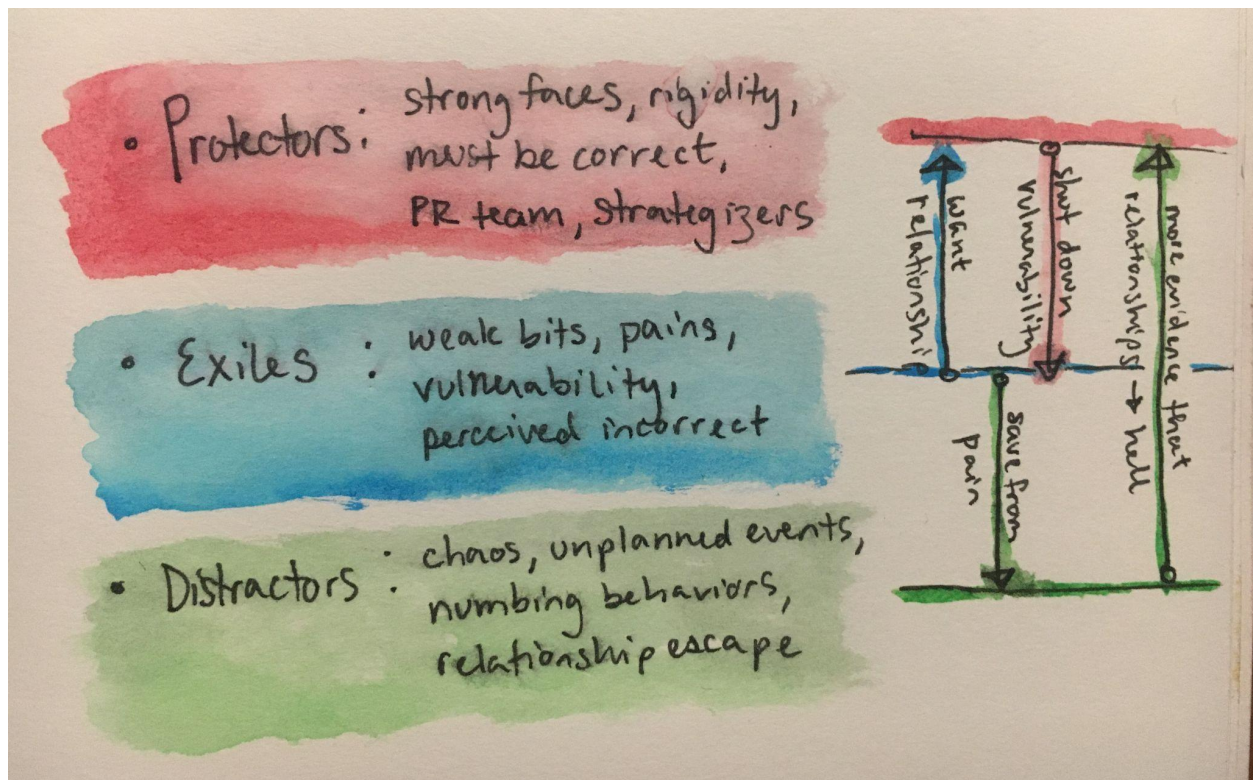 • Protectors: strong faces, rigidity,
must be correct,
PR team, strategizers
• Exiles : weak bits, pains,
vulnerability,
perceived incorrect
• Distractors : chaos, unplanned events,
numbing behaviors,
relationship escape
want
relationship
shut down
vulnerability
more evidence that
relationships → hell
save from
pain